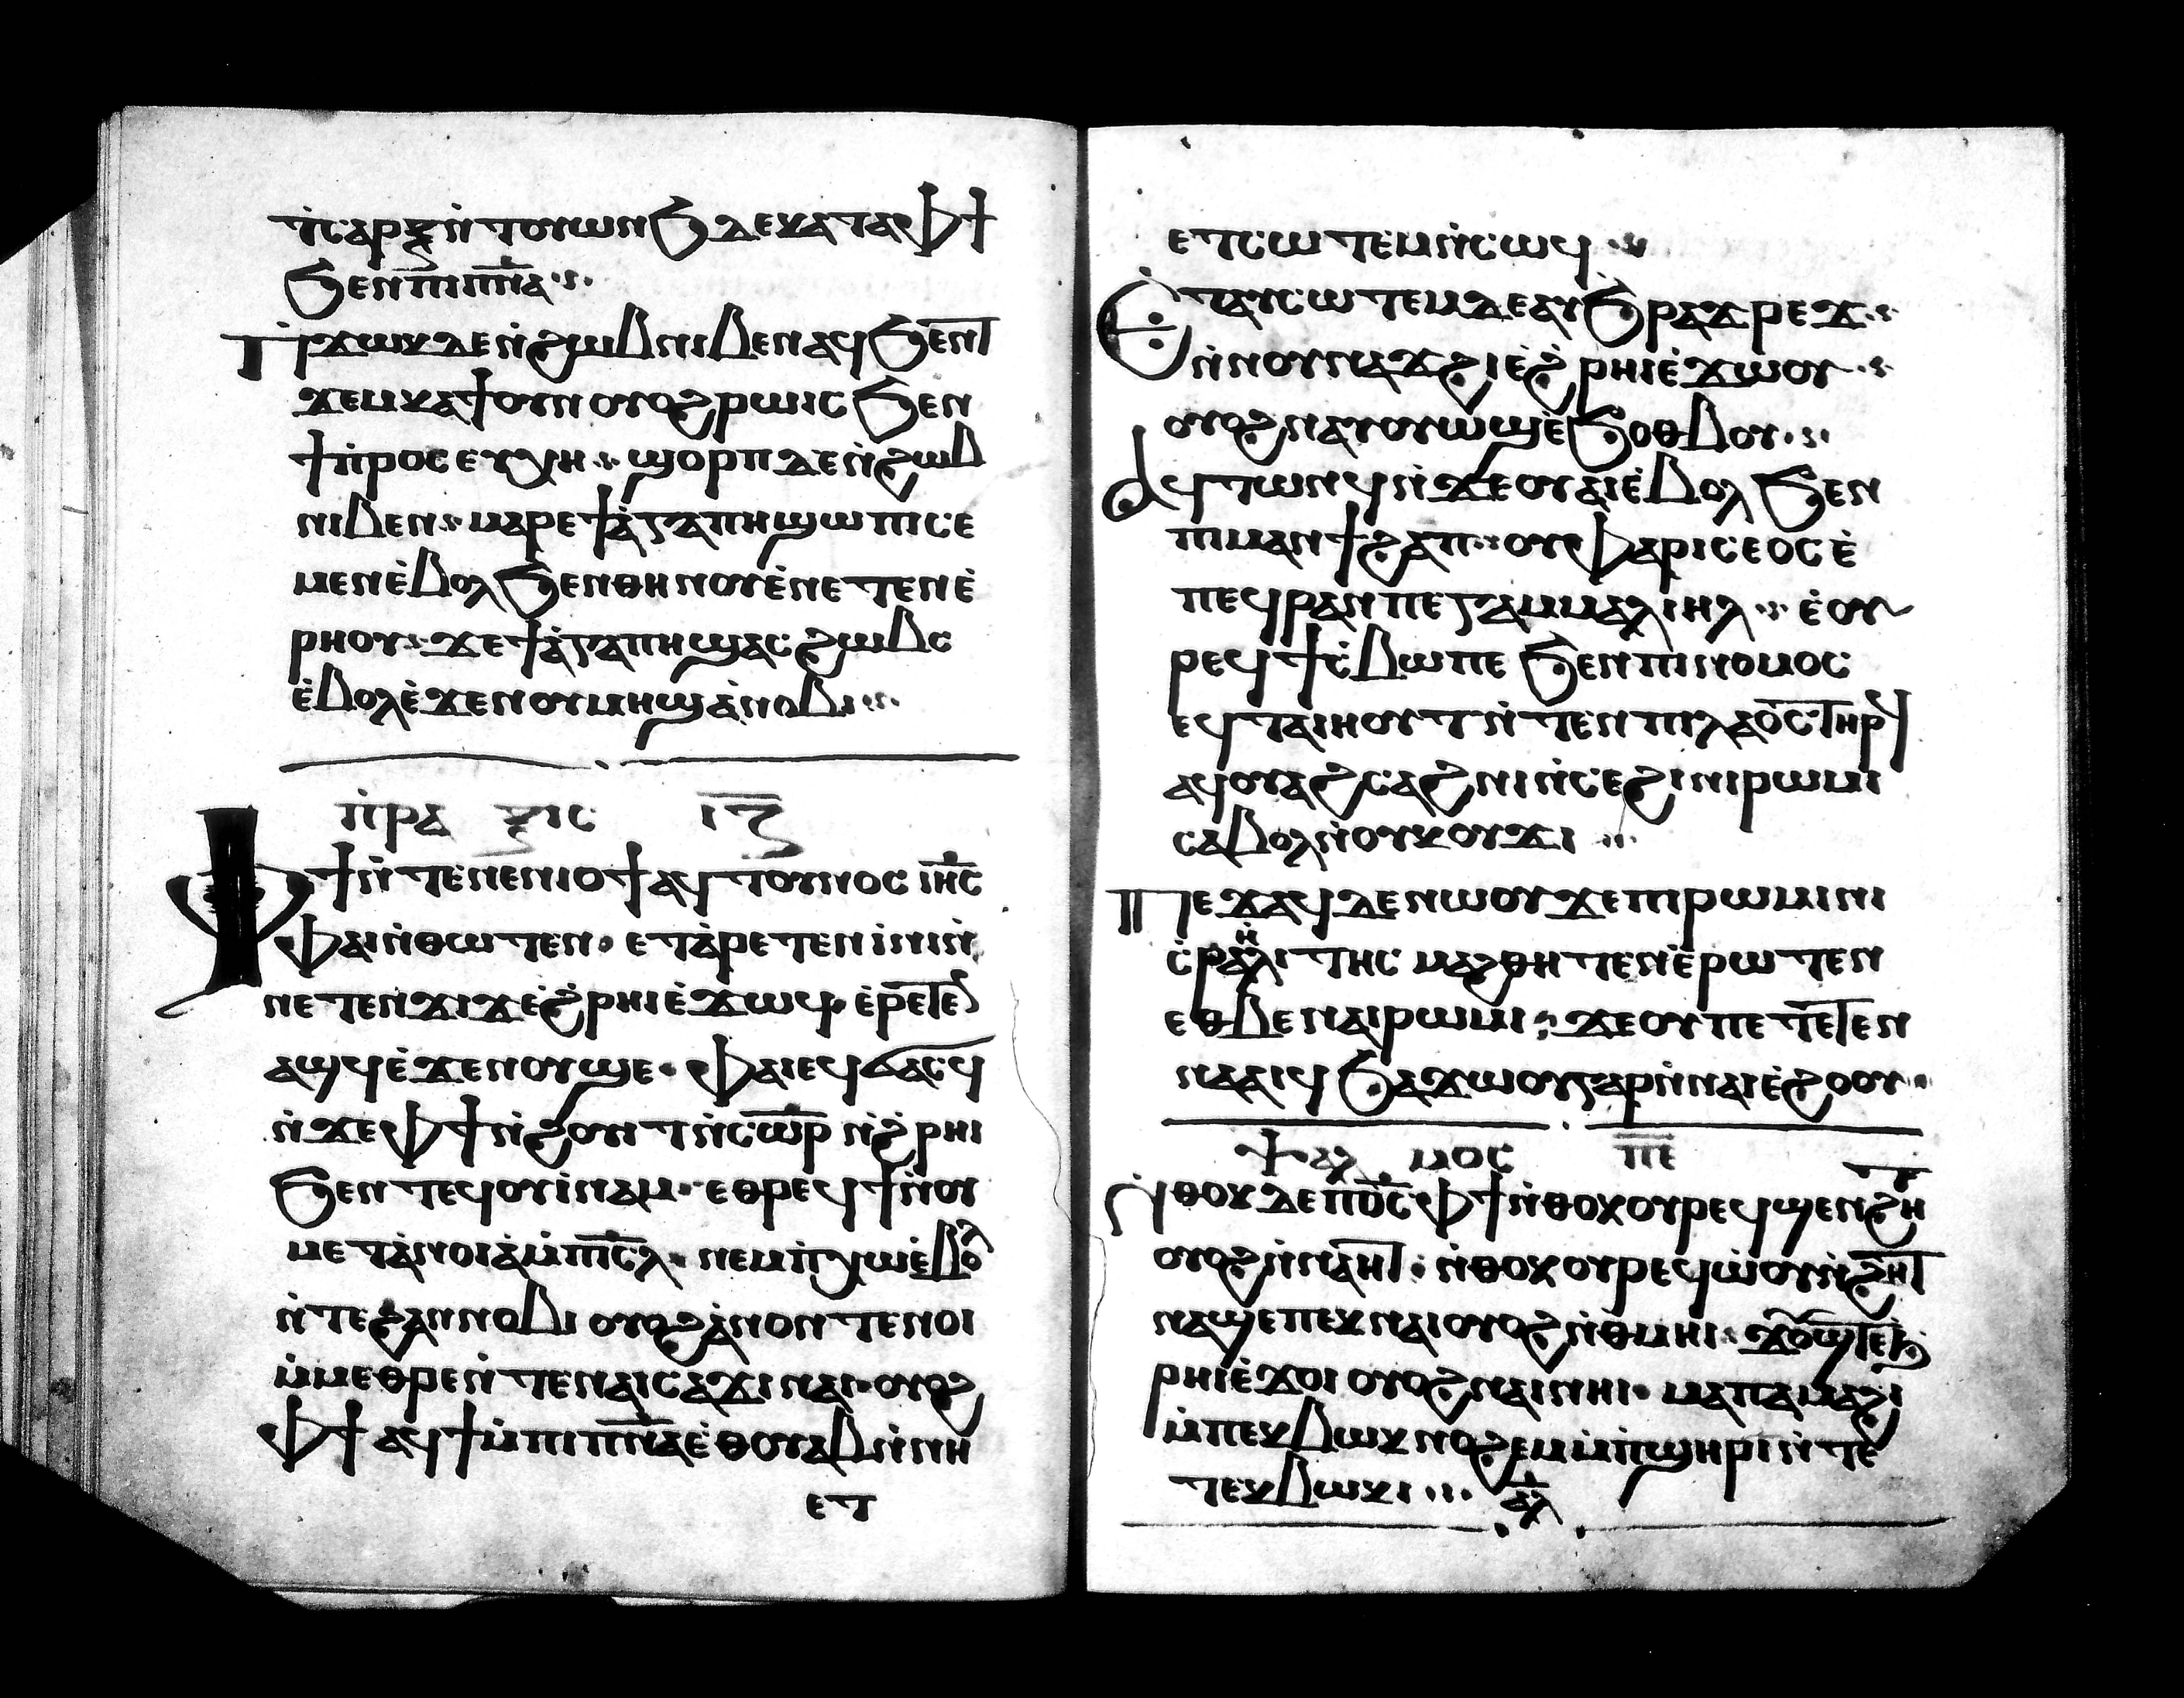 ⲧ̇ⲥⲁⲣⲝ ⲛ̇ⲧⲟⲩⲱⲛϧ ⲇⲉ ⲕⲁⲧⲁ ⲫϯ
ϧⲉⲛ ⲡⲓⲡ̅ⲛ̅ⲁ̅
ⲡ̇ϫⲱⲕ ⲇⲉ ⲛ̇ϩⲱⲃ ⲛⲓⲃⲉⲛ ⲁϥϧⲉⲛⲧ
ϫⲉⲙⲕⲁϯ ⲟⲩⲛ ⲟⲩⲟϩ ⲣⲱⲓⲥ ϧⲉⲛ
ϯⲡ̇ⲣⲟⲥⲉⲩⲭⲏ ϣⲟⲣⲡ ⲇⲉ ⲛ̇ϩⲱⲃ
ⲛⲓⲃⲉⲛ ⲙⲁⲣⲉ ϯⲁ̇ⲅⲁⲡⲏ ϣⲱⲡⲓ ⲥⲉ
ⲙⲉⲛ ⲉ̇ⲃⲟⲗ ϧⲉⲛ ⲑⲏⲛⲟⲩ ⲉ̇ⲛⲉⲧⲉⲛⲉ̇
ⲣⲏⲟⲩ ϫⲉ ϯⲁ̇ⲅⲁⲡⲏ ϣⲁⲥϩⲱⲃⲥ
ⲉ̇ⲃⲟⲗ ⲉ̇ϫⲉⲛ ⲟⲩⲙⲏϣ ⲁ̇ⲛⲟⲃⲓ
ⲡ̇ⲣⲁ ⲝⲓⲥ ⲓ̅ⲍ̅
ⲫϯ ⲛ̇ⲧⲉ ⲛⲉⲛⲓⲟϯ ⲁϥⲧⲟⲩⲛⲟⲥ ⲓⲏ̅ⲥ̅
ⲫⲁⲓ ⲛ̇ⲑⲱⲧⲉⲛ ⲉⲧⲁ̇ⲣⲉⲧⲉⲛ ⲓ̇ⲛⲓ ⲛ̇
ⲛⲉⲧⲉⲛϫⲓϫ ⲉ̇ϩ̇ⲣⲏⲓ ⲉ̇ϫⲱϥ ⲉ̇ⲣⲉⲧⲉⲛ
ⲁϣϥ ⲉ̇ϫⲉⲛ ⲟⲩϣⲉ ⲫⲁⲓ ⲉϥϭⲁⲥϥ
ⲛ̇ϫⲉ ⲫϯ ⲛ̇ϩⲟⲩⲧ ⲛ̇ⲥⲱ̅ⲣ̅ ⲛ̇ϩ̇ⲣⲏⲓ
ϧⲉⲛ ⲧⲉϥⲟⲩⲓ̇ⲛⲁⲙ ⲉⲑⲣⲉϥϯ ⲛ̇ⲟⲩ
ⲙⲉⲧⲁ̇ⲛⲟⲓⲁ ⲙ̇ⲡⲓⲥ̅ⲗ̅ ⲛⲉⲙ ⲡ̇ⲭⲱ ⲉ̇ⲃⲟⲗ
ⲛ̇ⲧⲉ ϩⲁⲛⲛⲟⲃⲓ ⲟⲩⲟϩ ⲁ̇ⲛⲟⲛ ⲧⲉⲛⲟⲓ
ⲙ̇ⲙⲉⲑⲣⲉ ⲛ̇ⲧⲉ ⲛⲁⲓⲥⲁϫⲓ ⲛⲁⲓ ⲟⲩⲟϩ
ⲫϯ ⲁϥϯ ⲙ̇ⲡⲓⲡ̅ⲛ̅ⲁ̅ ⲉ̇ⲑⲟⲩⲁⲃ ⲛ̇ⲛⲏ
ⲉⲧ
ⲉⲧⲥⲱⲧⲉⲙ ⲛ̇ⲥⲱϥ
ⲉ̇ⲧⲁⲩⲥⲱⲧⲉⲙ ⲇⲉ ⲁⲩϧⲣⲁϫⲣⲉϫ
ⲛ̇ⲛⲟⲩⲛⲁϫϩⲓ ⲉ̇ϩ̇ⲣⲏⲓ ⲉ̇ϫⲱⲟⲩ
ⲟⲩⲟϩ ⲛⲁⲩⲟⲩⲱϣ ⲉ̇ϧⲟⲑⲃⲟⲩ
ⲁϥⲧⲱⲛϥ ⲛ̇ϫⲉ ⲟⲩⲁⲓ ⲉ̇ⲃⲟⲗ ϧⲉⲛ
ⲡⲓⲙⲁⲛϯϩⲁⲡ ⲟⲩⲫⲁⲣⲓⲥⲉⲟⲥ ⲉ̇
ⲡⲉϥⲣⲁⲛ ⲡⲉ ⲅⲁⲙⲙⲁⲗⲓⲏⲗ ⲉ̇ⲟⲩ
ⲣⲉϥϯⲥ̇ⲃⲱ ⲡⲉ ϧⲉⲛ ⲡⲓⲛⲟⲙⲟⲥ
ⲉϥⲧⲁⲓⲏⲟⲩⲧ ⲛ̇ⲧⲉⲛ ⲡⲓⲗⲁⲟⲥ ⲧⲏⲣϥ
ⲁϥⲟⲩⲁϩⲥⲁϩⲛⲓ ⲛ̇ⲥⲉϩⲓ ⲛⲓⲣⲱⲙⲓ
ⲥⲁⲃⲟⲗ ⲛ̇ⲟⲩⲕⲟⲩϫⲓ
ⲡⲉϫⲁϥ ⲇⲉ ⲛⲱⲟⲩ ϫⲉ ⲛⲓⲣⲱⲙⲓ ⲛⲓ
ⲥ̇ⲣⲁⲏ̇ⲗⲓⲧⲏⲥ ⲙⲁϩⲑⲏⲧⲉⲛ ⲉ̇ⲣⲱⲧⲉⲛ
ⲉⲑⲃⲉ ⲛⲁⲓⲣⲱⲙⲓ ϫⲉ ⲟⲩ ⲡⲉⲧⲉⲧⲉⲛ
ⲛⲁⲁⲓϥ ϧⲁϫⲱⲟⲩ ⲅⲁⲣ ⲛ̇ⲛⲁⲓⲉ̇ϩⲟⲟⲩ
ⲯⲁⲗ ⲙⲟⲥ ⲡ̅ⲉ̅
ⲛ̇ⲑⲟⲕ ⲇⲉ ⲡⲟ̅ⲥ̅ ⲫϯ ⲛ̇ⲑⲟⲕ ⲟⲩⲣⲉϥϣⲉⲛϩⲏⲧ
ⲟⲩⲟϩ ⲛ̇ⲛⲁⲏⲧ ⲛ̇ⲑⲟⲕ ⲟⲩⲣⲉϥⲱ̇ⲟⲩⲛ̇ϩⲏⲧ
ⲛⲁϣⲉ ⲡⲉⲕⲛⲁⲓ ⲟⲩⲟϩ ⲛ̇ⲑⲙⲏⲓ ϫⲟⲩϣⲧ ⲉ̇ϧ
ⲣⲏⲓ ⲉ̇ϫⲟⲓ ⲟⲩⲟϩ ⲛⲁⲓ ⲛⲏⲓ ⲙⲁ ⲡⲁⲙⲁϩⲓ
ⲙ̇ⲡⲉⲕⲃⲱⲕ ⲛⲟϩⲉⲙ ⲙ̇ⲡ̇ϣⲏⲣⲓ ⲛ̇ⲧⲉ
ⲧⲉⲕⲃⲱⲕⲓ ⲁ̅ⲗ̅